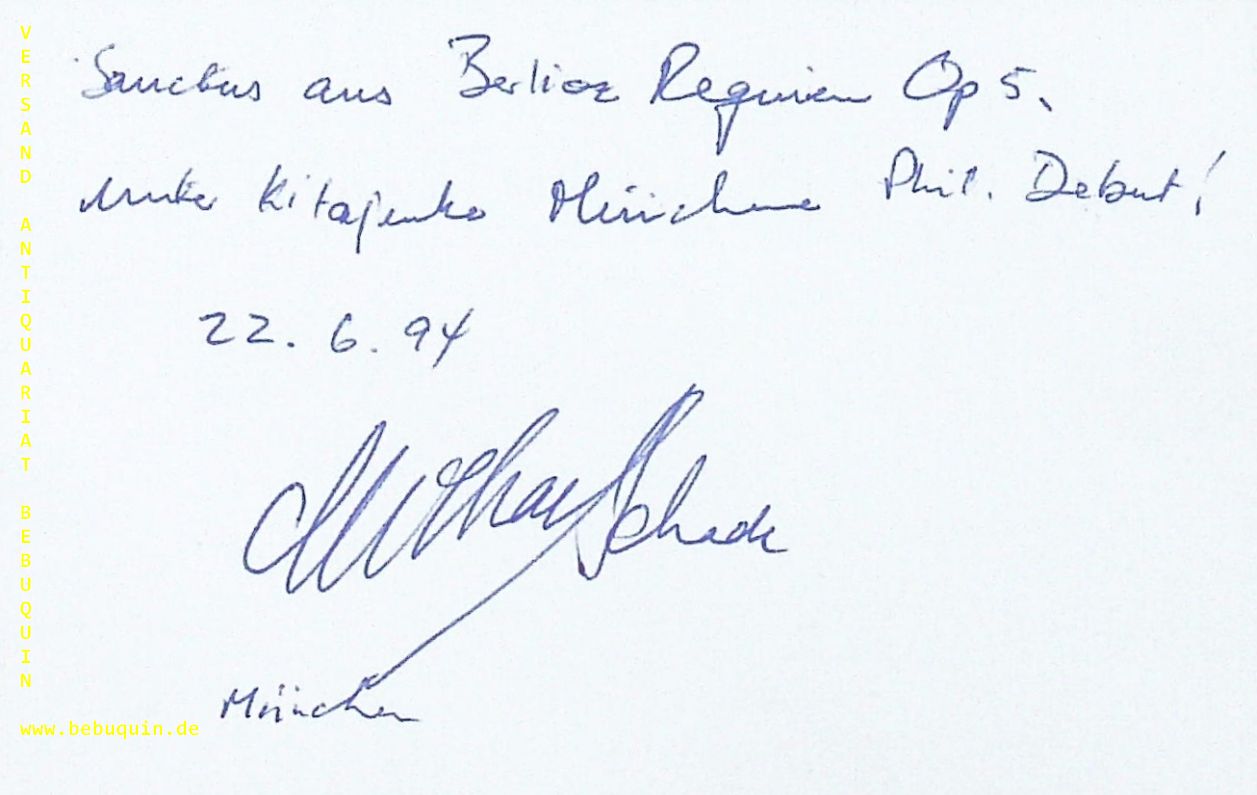 Sanctus aus Berlioz Requiem Op 5.
unter Kitajenko Münchner Phil. Debut!
22. 6. 94
Michael Schade
München
VERSAND ANTIQUARIAT BEBUQUIN
www.bebuquin.de